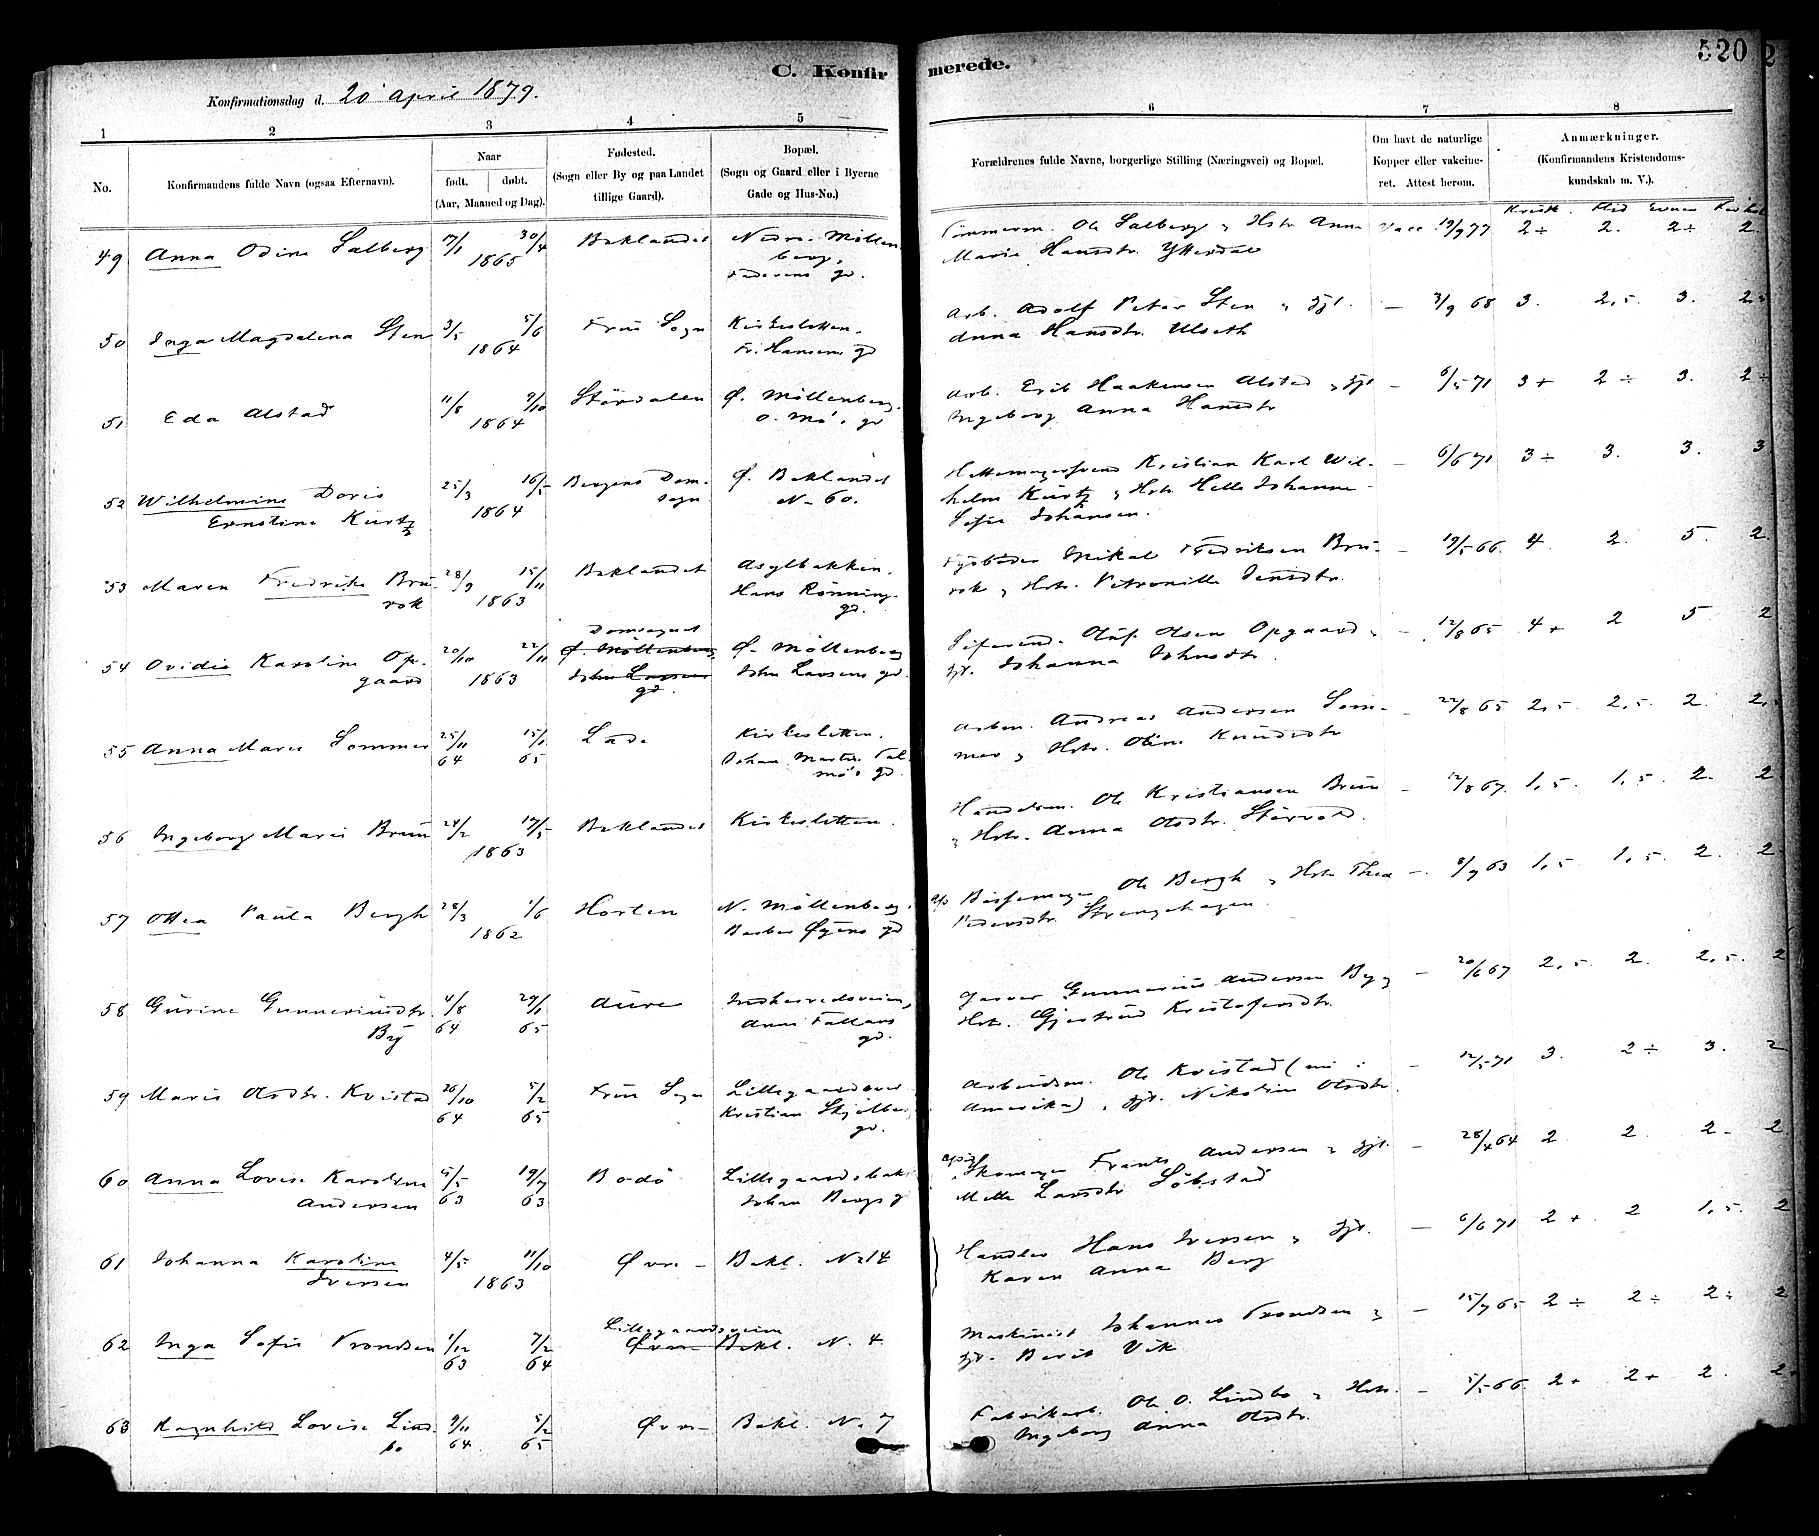 520
C. Konfirmerede.
Konfirmationsdag d. 20 April 1879.
1 2 3 4 5 6 7 8
No.
Konfirmandens fulde Navn (ogsaa Efternavn).
Naar
født. døbt.
(Aar, Maaned og Dag).
Fødested.
(Sogn eller By og paa Landet
tillige Gaard).
Bopæl.
(Sogn og Gaard eller i Byerne
Gade og Hus-No.)
Forældrenes fulde Navne, borgerlige Stilling (Næringsvei) og Bopæl.
Om havt de naturlige
Kopper eller vakcine-
ret. Attest herom.
Anmærkninger.
(Konfirmandens Kristendoms-
kundskab m. V.).
Flid Evner
49 Anna Odine Salberg 30/4 Baklandet Nedr. Möllen- Tömmerm. Ole Salberg Hstr. Anna Vacc. 19/9 77 2÷ 2. 2÷ 2
1865 berg, Marie Hansdtr. Ytterdal
Faderens gd.
50 Inga Magdalena Sten 3/5 5/6 Frue Sogn Kirkesletten. Arb. Adolf Peter Sten, Hjl. — 3/9 68 3. 2,5. 3. 2,5
1864 Fr. Hansens gd Anna Hansdtr. Ulseth
51 Eda Alstad 11/8 9/10 Stördalen Ø. Möllenberg. Arb. Erik Haakensen Alstad — 6/5 71 3+ 2÷ 3. 2÷
1864 O. Mö's gd Ingeborg Anna Hansdtr
52 Wilhelmine Doris 25/3 16/5 Bergens Dom- Ø. Baklandet Hattemagersvend Kristian Karl Wil- — 6/6 71 3÷ 3. 3. 3
Ernstine Kurtz 1864 sogn N. 60. helm Kurtz Hstr. Helle Johanne
Sofie Johansen.
53 Maren Fredrikke Brü- 28/9 15/11 Baklandet Asylbakken. Mikal Fredriksen Brü- — 19/5 66. 4. 2. 5. 2
rok 1863 Hans Rönning rok Hstr. Petronille Jensdtr.
gd.
54 Ovidia Karoline Op- 20/10 22/11 Domsognet Ø. Möllenberg Oluf Olsen Opgaard — 12/8 65 4+ 2 5 2
gaard 1863 John Larsens gd. Johanna Johnsdtr.
55 Anna Marie Sommer 25/11 15/1 Lade Kirkesletten. Arbm. Andreas Andersen Som- — 22/8 65 2,5 2,5. 2. 2,5
64 65 mer Hstr. Oline Knudsdtr
56 Ingeborg Marie Brün 28/2 17/5 Baklandet Kirkesletten. Handelsm. Ole Kristiansen Brün — 12/8 67. 1,5. 1,5. 2. 2
1863 Hstr. Anna Olsdtr. Störvold.
57 Ottea Paula Bergh 28/3 1/6 Horten N. Möllenberg. Bössemager Ole Bergh Hstr Thea — 8/9 63 1,5 1,5. 2. 2
1862 Barber Øyens gd Pedersdtr. Strengehagen
58 Gurine Gunneriusdtr. 29/1 Aure Garver Gunnerius Andersen By — 20/6 67 2,5. 2. 2,5. 2
By 64 65 gd. Hstr. Gjertrud Kristofersdtr.
59 Marie Olsdtr. Kvistad 26/10 5/2 Frue Sogn Arbeidsm. Ole Kvistad (nu i — 12/5 71 3. 2÷ 3. 2
64 65 Kristian gd. Amerika), Nikoline Olsdtr.
60 Anna Lovise Karoline 19/7 Bodö Lillegaardsbak Skomager Frants Andersen — 28/4 64 2. 2. 2 2
Andersen 63 63 Johan Bergs g Larsdtr Löbstad
61 Johanna Karoline 4/5 11/10 Øvre — Bakl. N. 14 Handler Hans Iversen — 6/6 71 2+ 2 1,5. 2
Iversen 1863 Karen Anna Berg
62 Inga Sofie Trondsen 1/12 7/2 Lillegaardsveien Øvre Bakl. N. 4 Maskinist Johannes Trondsen — 15/7 65 2÷ 2÷ 2÷ 2
63 64 Berit Vik
63 Ragnhild Lovise Lind- 9/11 5/2 Øvre — Bakl. N. 7 Fabrikarb. Ole O. Lindbo Hstr. — 5/5 66 2+ 2+ 2. 2
bo 64 65 Ingeborg Anna Olsdtr.